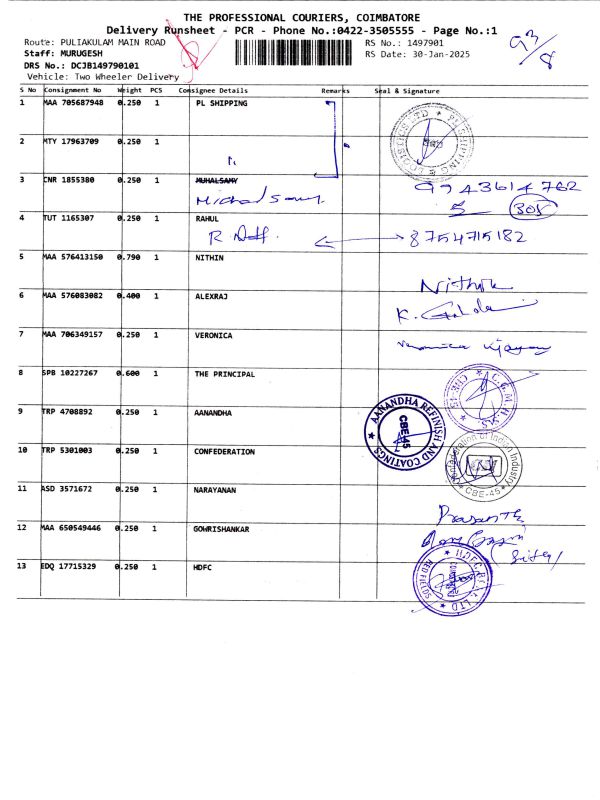 THE PROFESSIONAL COURIERS, COIMBATORE
Delivery Runsheet - PCR - Phone No.:0422-3505555 - Page No.:1
Route: PULIAKULAM MAIN ROAD RS No.: 1497901
Staff: MURUGESH RS Date: 30-Jan-2025
DRS No.: DCJB149790101
Vehicle: Two Wheeler Delivery
93/8
S No Consignment No Weight PCS Consignee Details Remarks Seal & Signature
1 MAA 705687948 0.250 1 PL SHIPPING
2 MTY 17963709 0.250 1
3 CNR 1855380 0.250 1 MUHALSAMY 9943614762
305
4 TUT 1165307 0.250 1 RAHUL
8754715182
5 MAA 576413150 0.790 1 NITHIN
Nithin
6 MAA 576083082 0.400 1 ALEXRAJ
7 MAA 706349157 0.250 1 VERONICA
Veronica
8 SPB 10227267 0.600 1 THE PRINCIPAL
C.G.M.H.SS CBE-45
9 TRP 4708892 0.250 1 AANANDHA
AANANDHA REFINISH AND COATINGS CBE-45
10 TRP 5301003 0.250 1 CONFEDERATION
Confederation of Indian Industry CBE-45
11 ASD 3571672 0.250 1 NARAYANAN
Prasanth
12 MAA 650549446 0.250 1 GOWRISHANKAR
13 EDQ 17715329 0.250 1 HDFC